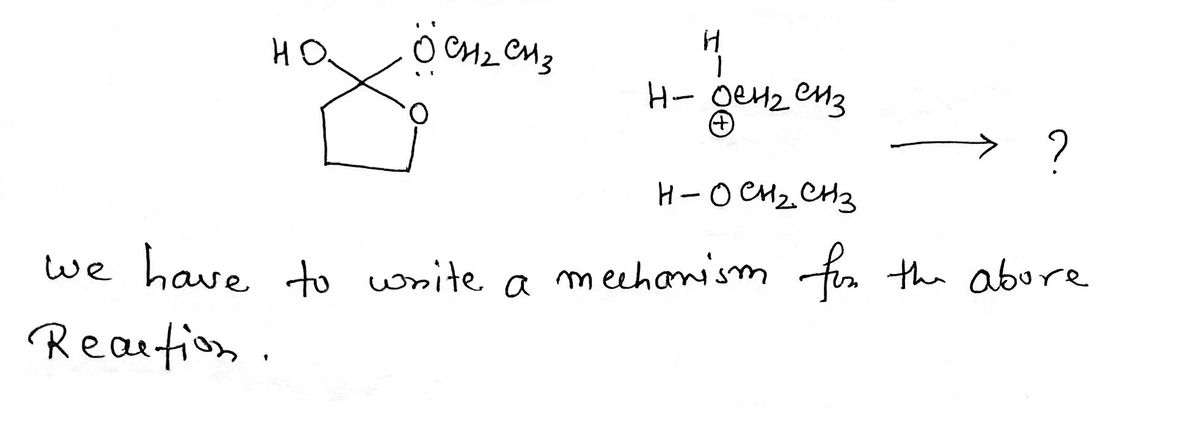 HO ÖCH2CH3
O
H
H- OCH2CH3
⊕
→ ?
H-OCH2CH3
we have to write a mechanism for the above
Reaction.